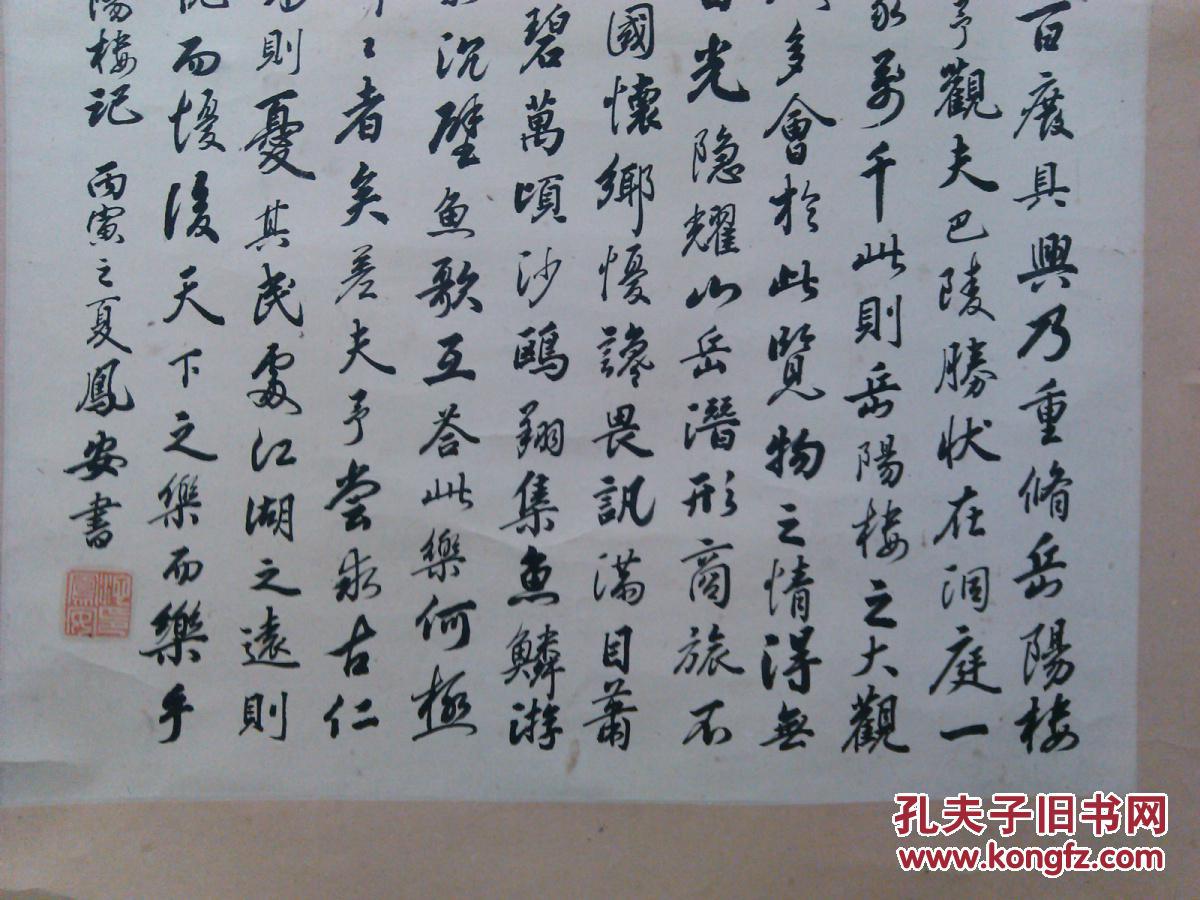 百廢具興乃重脩岳陽樓
予觀夫巴陵勝狀在洞庭一
象萬千此則岳陽樓之大觀
多會於此覽物之情得無
光隐耀山岳潛形商旅不
國懷鄉憂讒畏訊滿目蕭
碧萬頃沙鷗翔集魚鱗游
沉璧魚歌互荅此樂何極
者矣差夫予嘗求古仁
則憂其民處江湖之遠則
而憂後天下之樂而樂乎
陽樓記 丙寅之夏鳳安書
孔夫子旧书网
www.kongfz.com